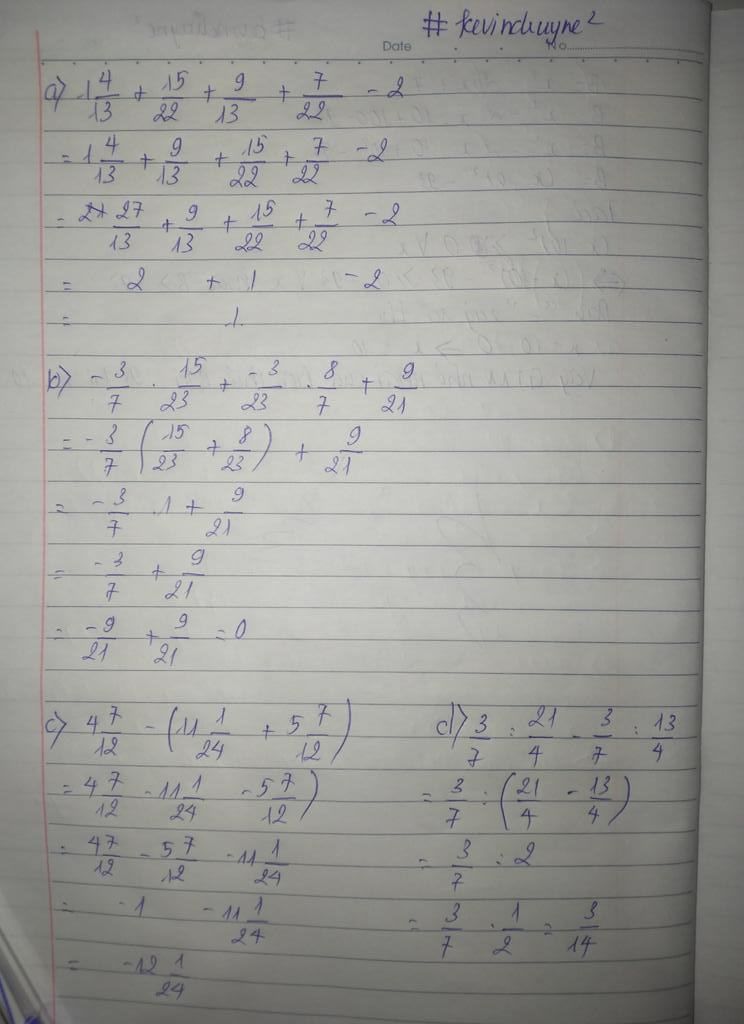 # kevinchuyne²
Date No.
a) 1 4/13 + 15/22 + 9/13 + 7/22 - 2
= 1 4/13 + 9/13 + 15/22 + 7/22 - 2
= 27/13 + 9/13 + 15/22 + 7/22 - 2
= 2 + 1 - 2
= 1.
b) -3/7 . 15/23 + -3/23 . 8/7 + 9/21
= -3/7 (15/23 + 8/23) + 9/21
= -3/7 .1 + 9/21
= -3/7 + 9/21
= -9/21 + 9/21 = 0
c) 4 7/12 - (11 1/24 + 5 7/12)
= 4 7/12 - 11 1/24 - 5 7/12)
= 4 7/12 - 5 7/12 - 11 1/24
= -1 - 11 1/24
= -12 1/24
d) 3/7 : 21/4 - 3/7 : 13/4
= 3/7 : (21/4 - 13/4)
= 3/7 : 2
= 3/7 . 1/2 = 3/14